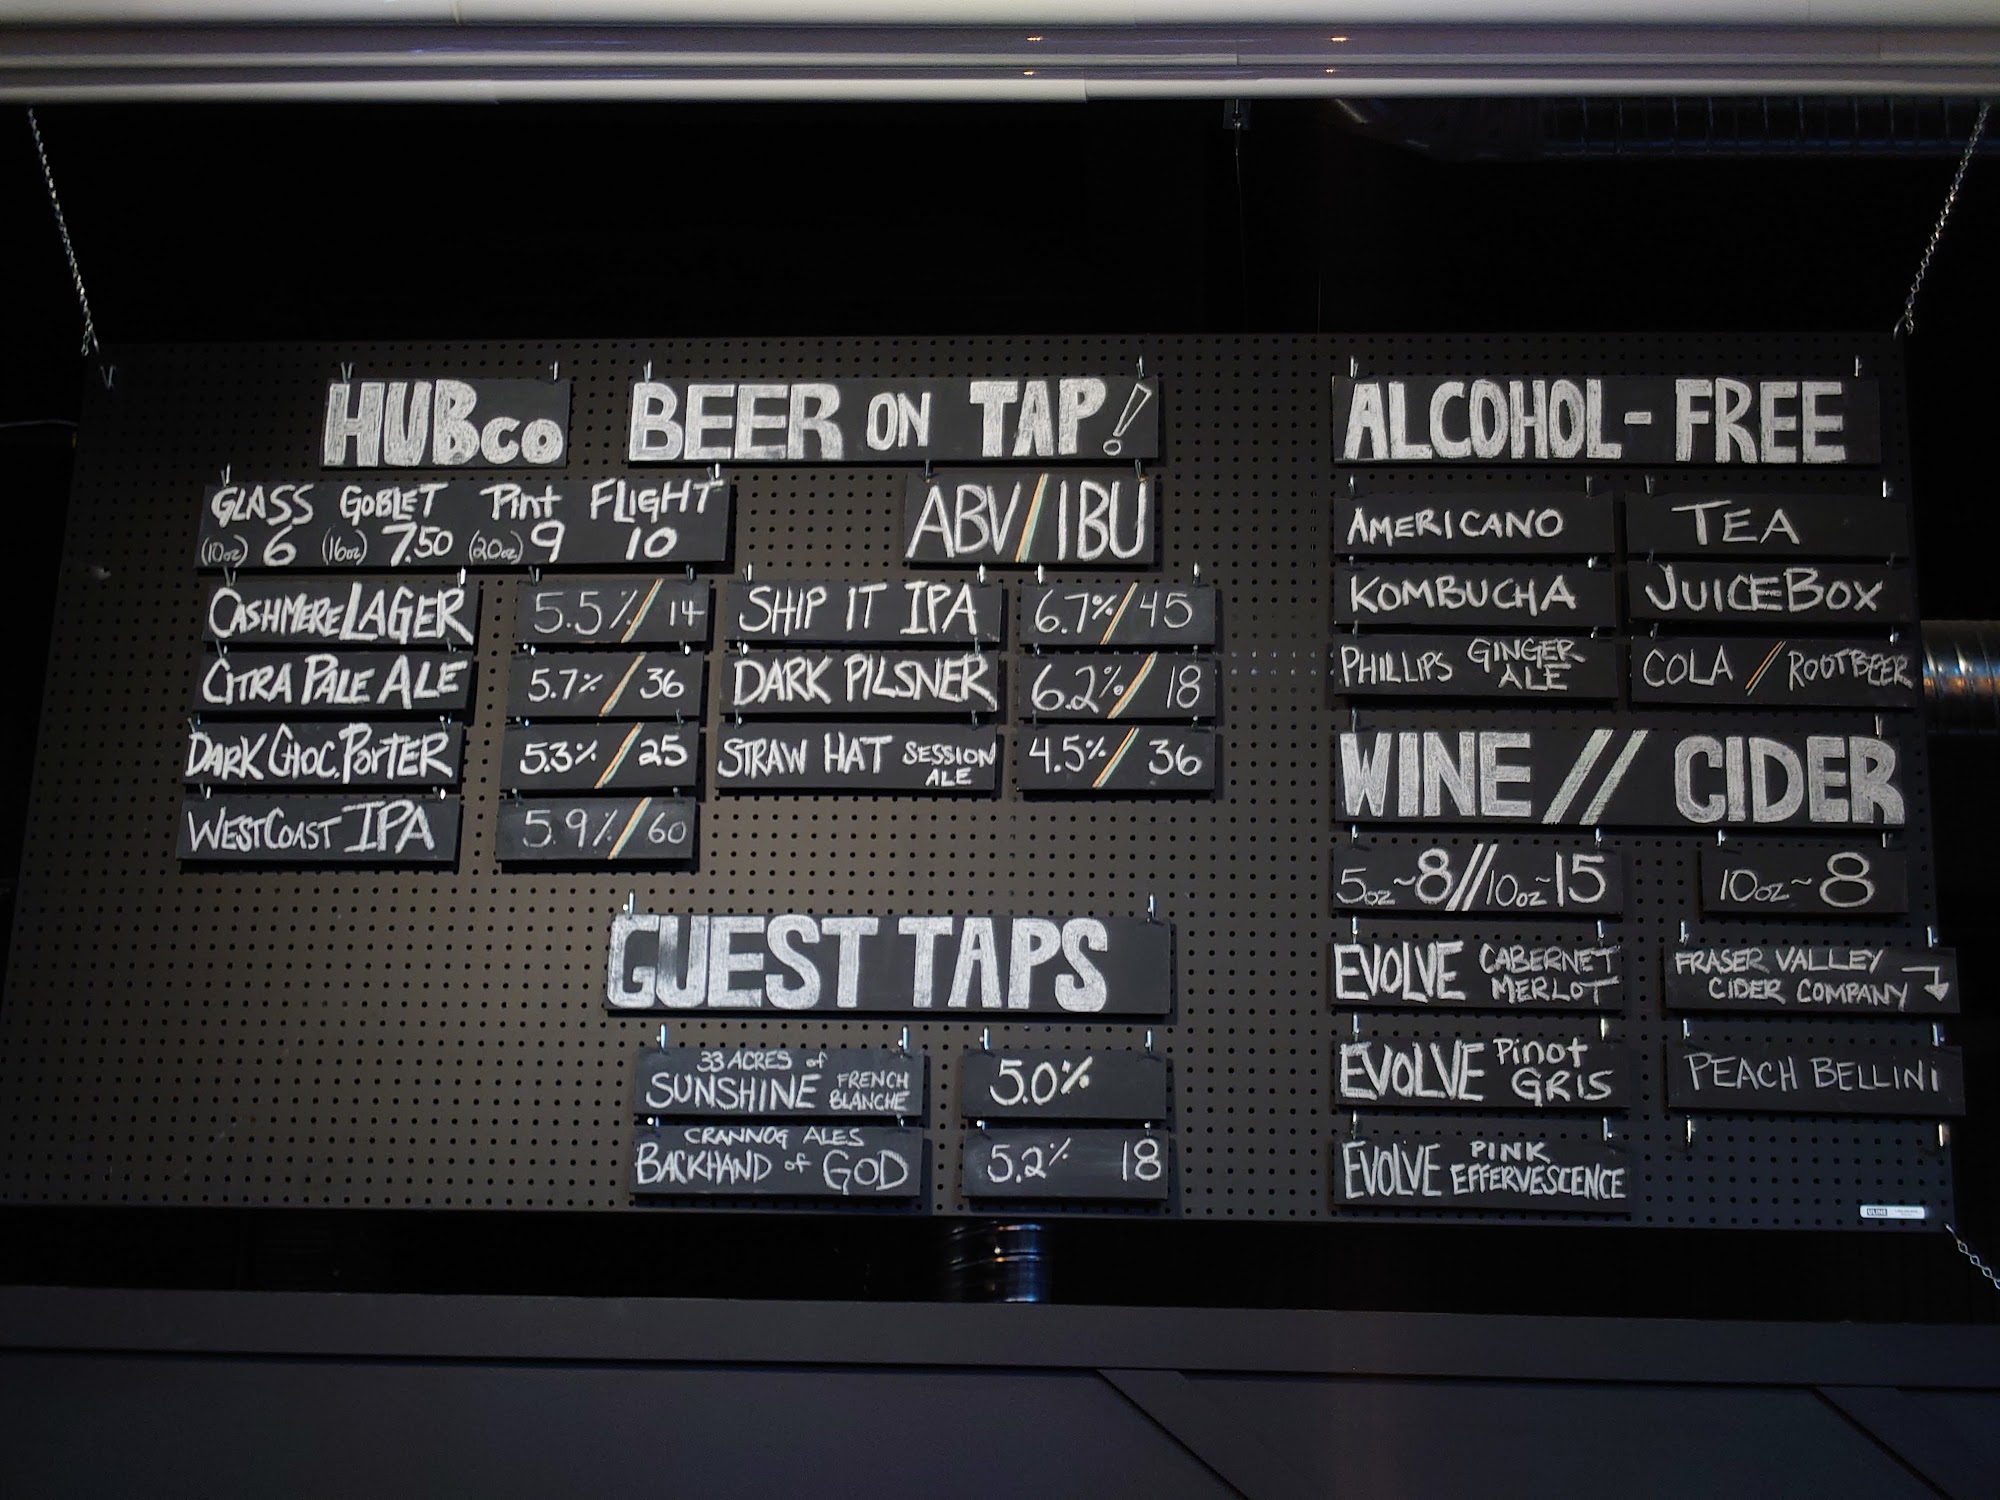 HUBco
BEER ON TAP!
GLASS GOBLET Pint FLIGHT
(10oz) 6 (16oz) 7.50 (20oz) 9 10
ABV/IBU
CASHMERE LAGER 5.5%/14
CITRA PALE ALE 5.7%/36
DARK CHOC. PORTER 5.3%/25
WEST COAST IPA 5.9%/60
SHIP IT IPA 6.7%/45
DARK PILSNER 6.2%/18
STRAW HAT SESSION ALE 4.5%/36
GUEST TAPS
33 ACRES of
SUNSHINE FRENCH BLANCHE 5.0%
CRANNOG ALES
BACKHAND of GOD 5.2% 18
ALCOHOL-FREE
AMERICANO TEA
KOMBUCHA JUICEBOX
PHILLIPS GINGER ALE COLA / ROOTBEER
WINE // CIDER
5oz~8//10oz~15
10oz~8
EVOLVE CABERNET MERLOT
EVOLVE PINOT GRIS
EVOLVE PINK EFFERVESCENCE
FRASER VALLEY
CIDER COMPANY
PEACH BELLINI
ULINE